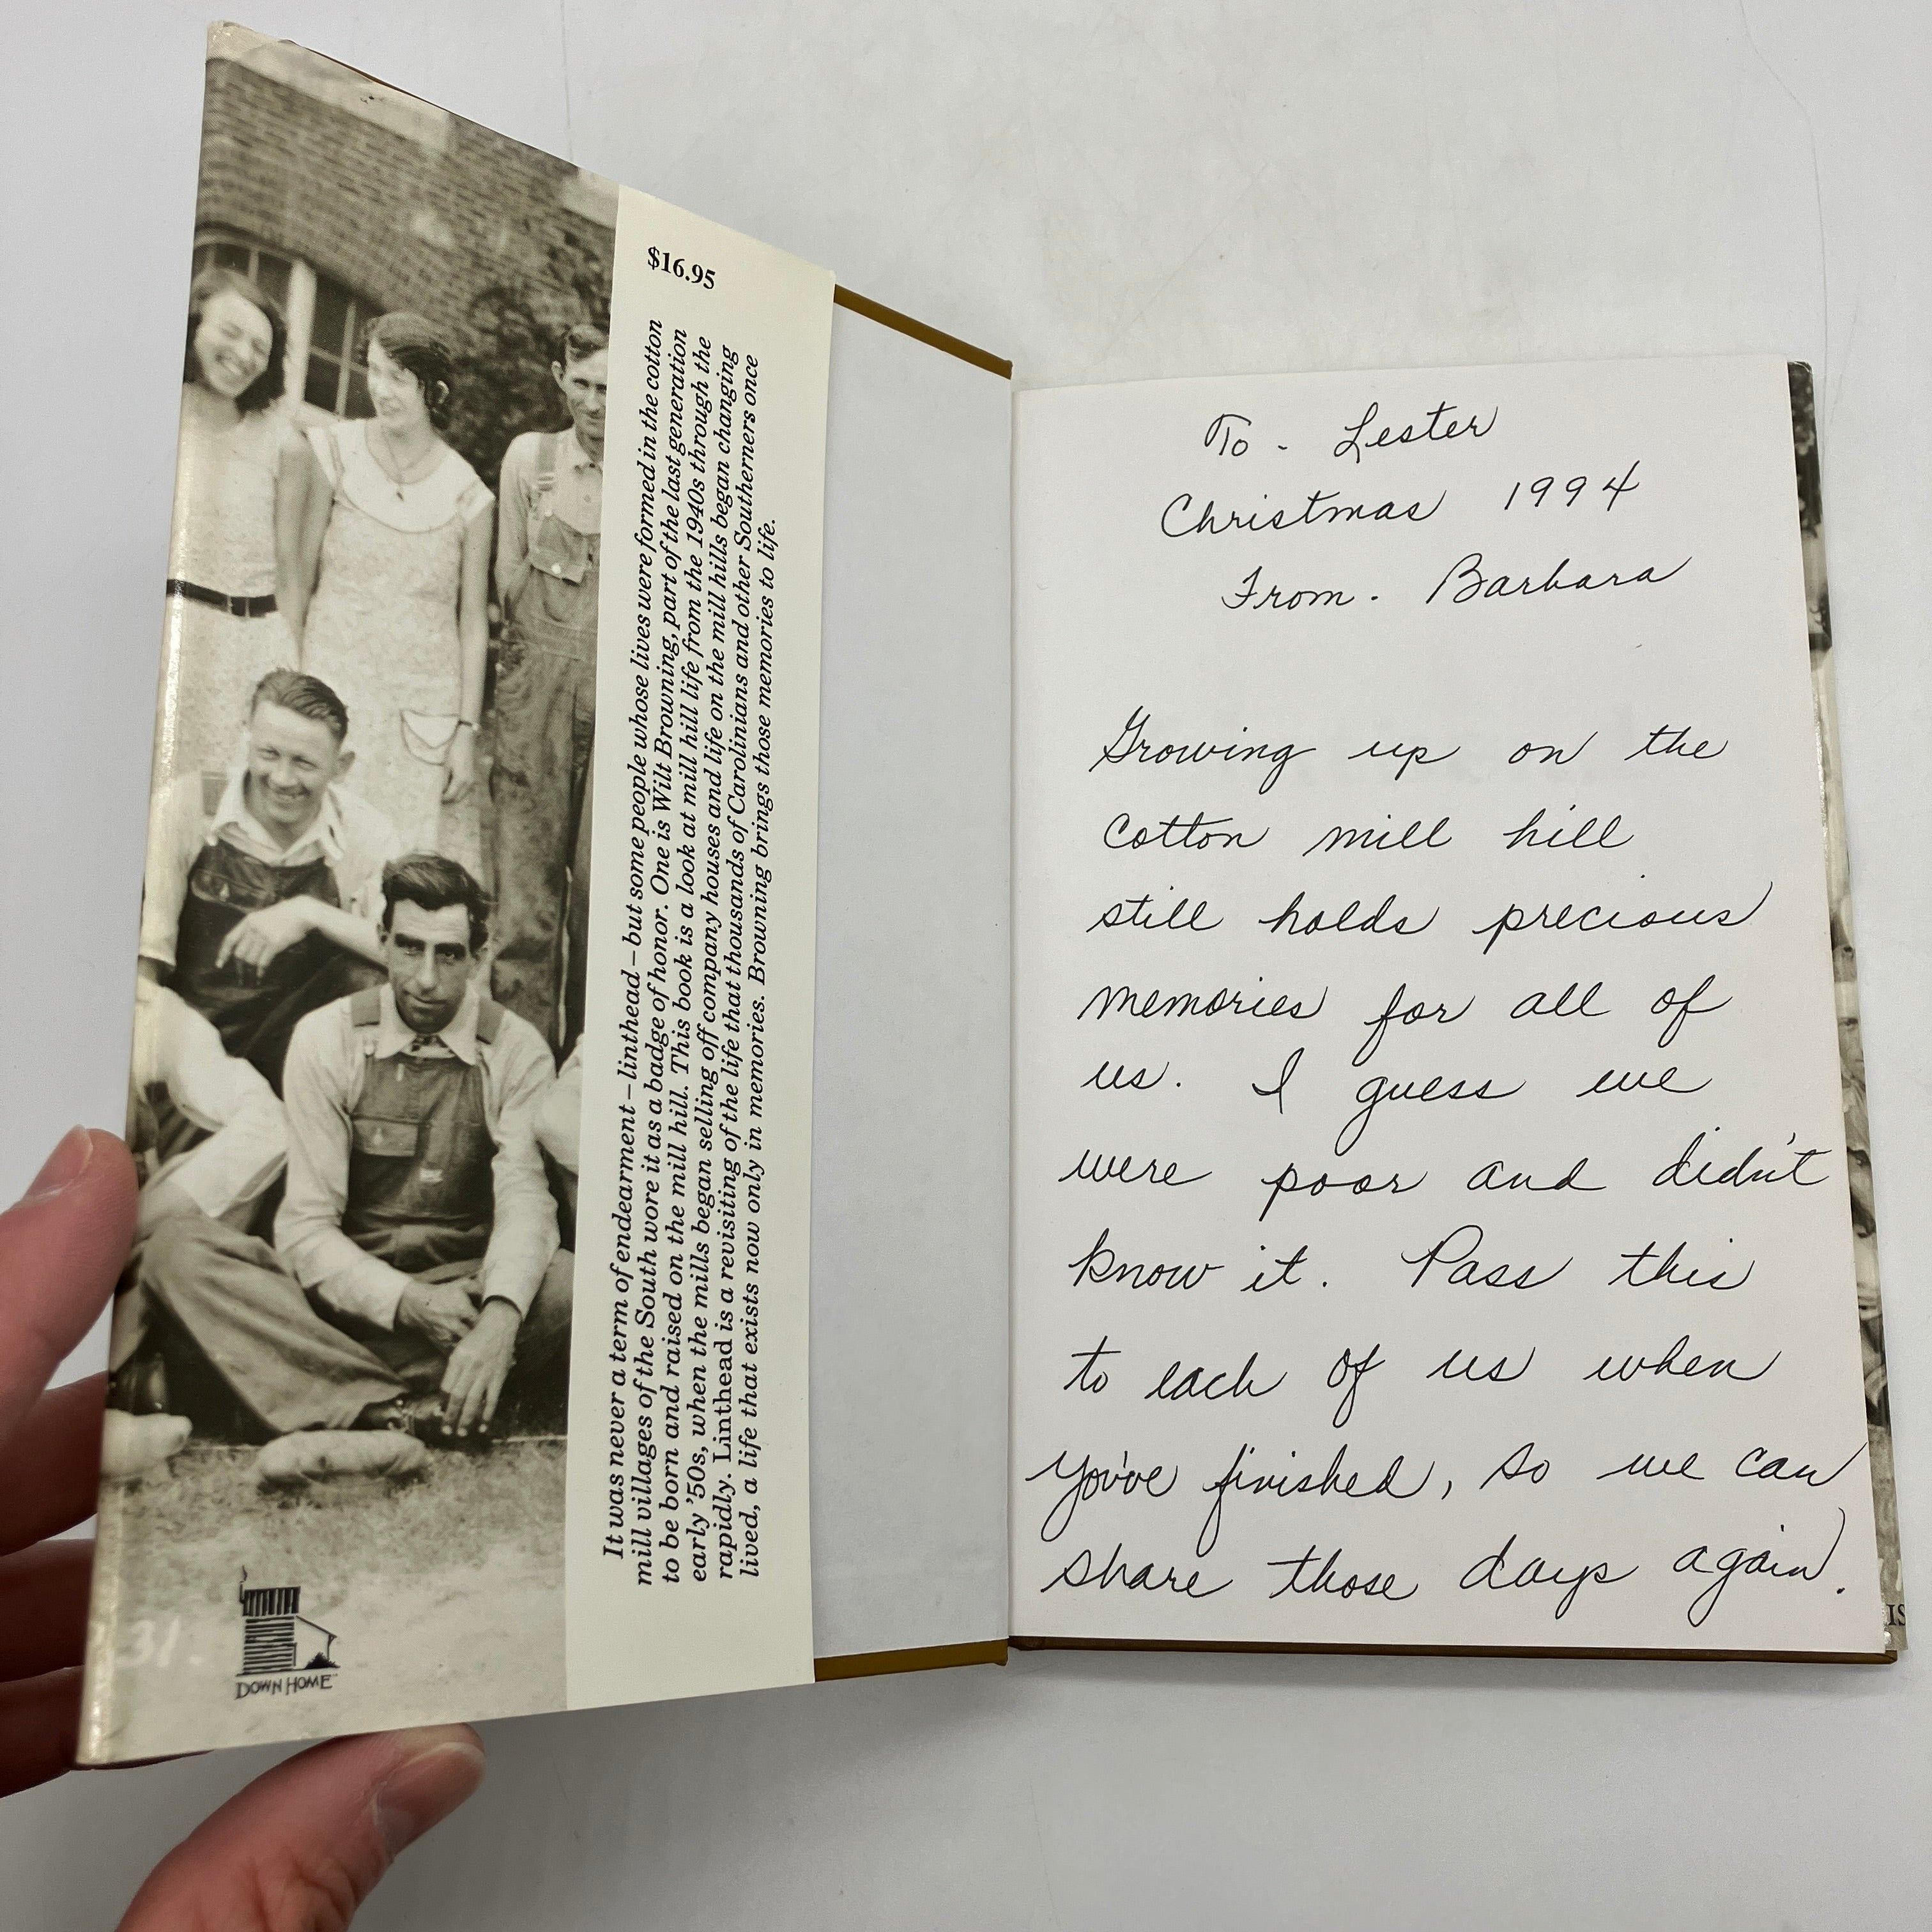 $16.95
It was never a term of endearment—linthead—but some people whose lives were formed in the cotton
mill villages of the South wore it as a badge of honor. One is Wilt Browning, part of the last generation
to be born and raised on the mill hill. This book is a look at mill hill life from the 1940s through the
early '50s, when the mills began selling off company houses and life on the mill hills began changing
rapidly. Linthead is a revisiting of the life that thousands of Carolinians and other Southerners once
lived, a life that exists now only in memories. Browning brings those memories to life.
31.
DOWN HOME
To - Lester
Christmas 1994
From. Barbara
Growing up on the
cotton mill hill
still holds precious
memories for all of
us. I guess we
were poor and didn't
know it. Pass this
to each of us when
you've finished, so we can
share those days again.
IS